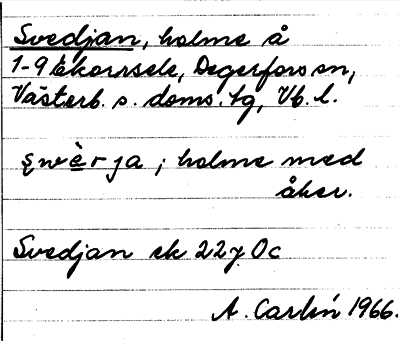 Svedjan, holme å
1-9 Ekorrsele, Degerfors sn,
Västerb. s. doms. tg, Vb. l.
swè̱rja ; holme med
åker.
Svedjan ek 22y 0c
A. Carlén 1966.